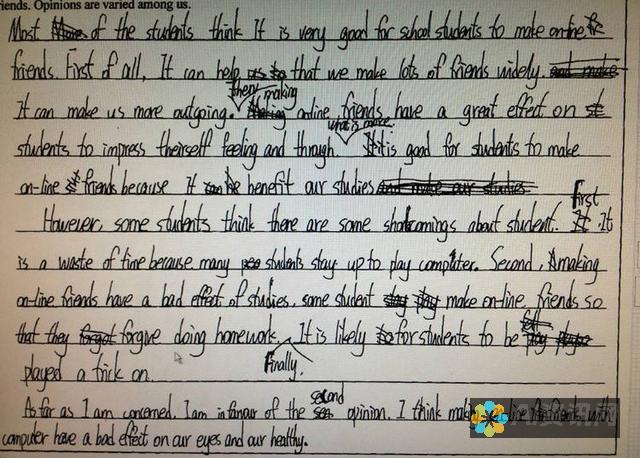 riends. Opinions are varied among us.
Most of the students think It is very good for school students to make on-line
friends. First of all, It can help that we make lots of friends widely.
It can make us more outgoing. then making on-line friends have a great effect on
students to impress theirself feeling and through. what is more. It is good for students to make
on-line friends because it benefit our studies
However, some students think there are some shortcomings about student. first. It
is a waste of time because many students stay up to play computer. Second, making
on-line friends have a bad effect of studies, some student make on-line friends so
that they forgive doing homework. Finally. It is likely for students to be
played a trick on.
As far as I am concerned, I am in favour of the second opinion. I think line friends with
computer have a bad effect on our eyes and our healthy.